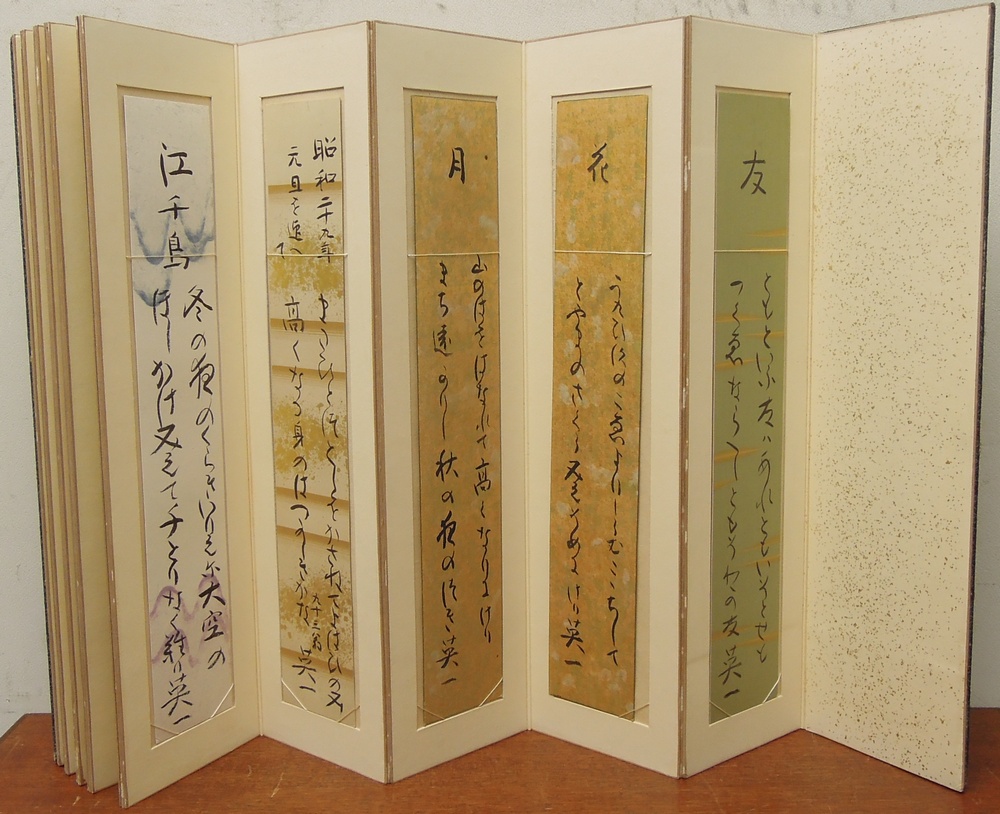 友
ともといふ友はあれともいつとても
つくゑならへしともそわか友 英一
花
うくひすのこゑより ここちして
とやまのさとは けり 英一
月
山のはをはなれて高くなりにけり
まち遠かりし秋の夜のつき 英一
昭和二十九年
元旦を迎へて
ひとつとしをかさねてよはひの又
高くなる身のはつかしきかな
九十三翁
英一
江千鳥
冬の夜のくらきいりえに大空の
ほしかけ見えて千とりなくなり 英一